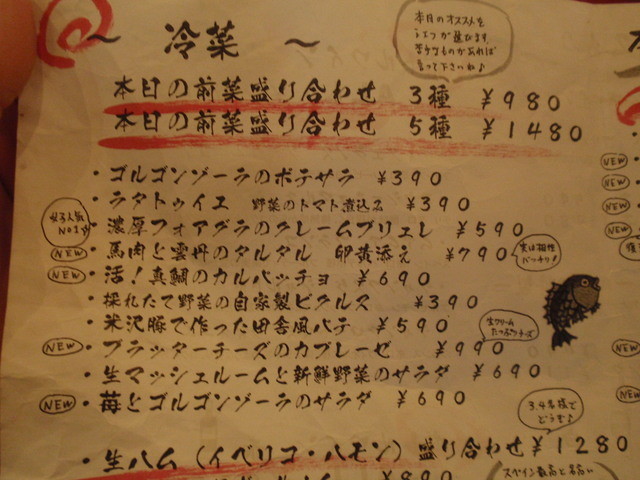 ~ 冷菜 ~
本日のオススメを
シェフが選びます
苦手なものがあれば
言って下さいね♪
本日の前菜盛り合わせ 3種 ¥980
本日の前菜盛り合わせ 5種 ¥1480
・ゴルゴンゾーラのポテサラ ¥390
・ラタトゥイユ 野菜のトマト煮込み ¥390
女子人気
No.1
・濃厚フォアグラのクレームブリュレ ¥590
NEW ・馬肉と雲丹のタルタル 卵黄添え ¥790
実は相性
バッチリ!
NEW ・活!真鯛のカルパッチョ ¥690
・採れたて野菜の自家製ピクルス ¥390
・米沢豚で作った田舎風パテ ¥590
生クリーム
たっぷりチーズ
NEW ・ブラッターチーズのカプレーゼ ¥990
・生マッシュルームと新鮮野菜のサラダ ¥690
NEW ・苺とゴルゴンゾーラのサラダ ¥690
3,4名様で
どうぞ♪
・生ハム(イベリコ・ハモン)盛り合わせ ¥1280
スペイン最高と名高い
¥890
NEW
NEW
NEW
NEW
NEW
NEW